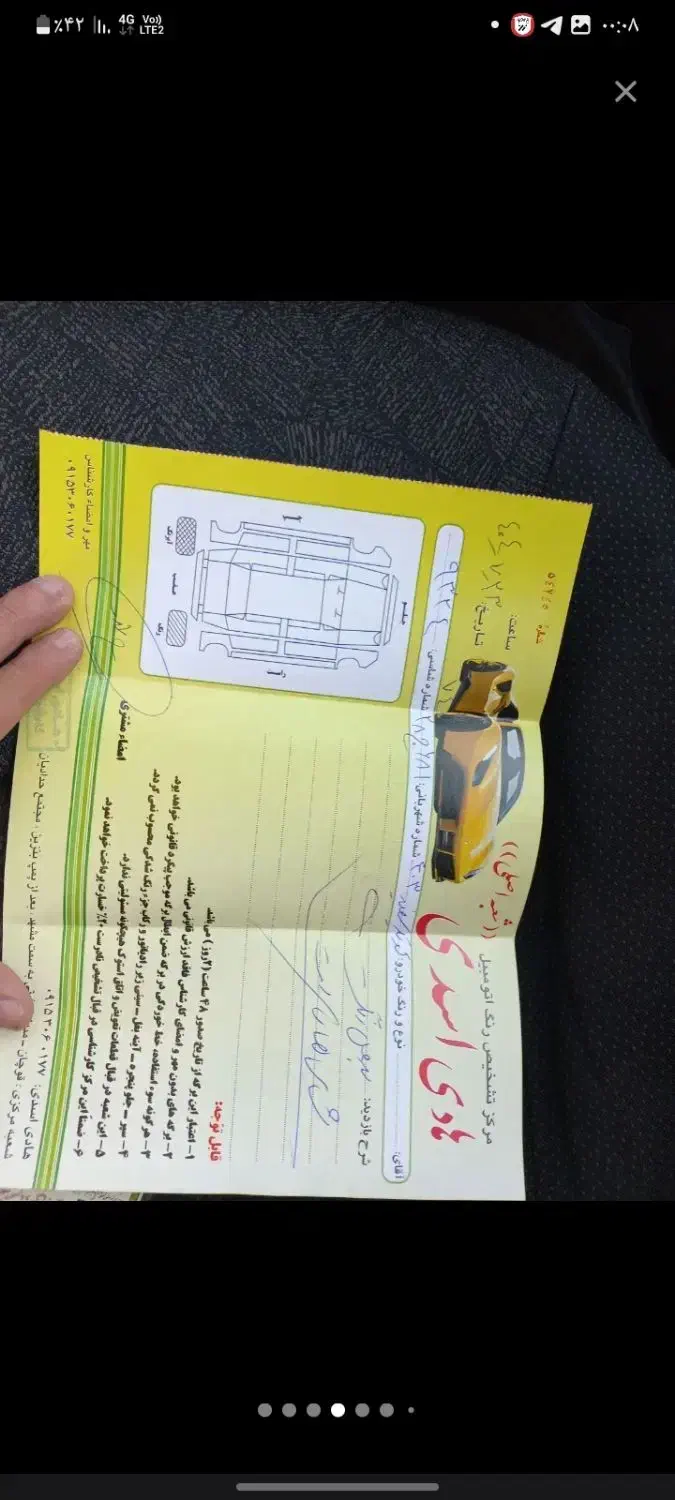 ٪۴۲
4G
Vo))
LTE2
۰۰:۰۸
مرکز تشخیص رنگ اتومبیل
هادی اسدی
((شعبه اصلی))
ساعت:
تاریخ:
آقای:
نوع و رنگ خودرو:
شماره شهربانی:
شماره شاسی:
شرح بازدید:
بدون رنگ
جلو
عقب
رنگ
قابل توجه:
۱- اعتبار این برگه از تاریخ صدور ۴۸ ساعت (۲ روز) می باشد.
۲- برگه های بدون مهر و امضای کارشناس فاقد ارزش قانونی می باشد.
۳- هر گونه سوء استفاده، خط خوردگی در برگه ضمن ابطال برگه موجب پیگرد قانونی خواهد بود.
۴- سپر - جلو پنجره - آینه بغل - سینی زیر رادیاتور و رکاب جزء رنگ شدگی محسوب نمی گردد.
۵- این شعبه در قبال قطعات تعویض و اتاق استوک هیچگونه مسئولیتی ندارد.
۶- ضمناً این مرکز کارشناسی در قبال تشخیص نادرست ۲۰٪ خسارت پرداخت خواهد نمود.
امضاء مشتری
مهر و امضاء کارشناس
۰۹۱۵۳۰۶۰۱۷۷
هادی اسدی: ۰۹۱۵۳۰۶۰۱۷۷
شعبه مرکزی: قوچان
به سمت مشهد، بعد از پمپ بنزین، مجتمع حدادیان